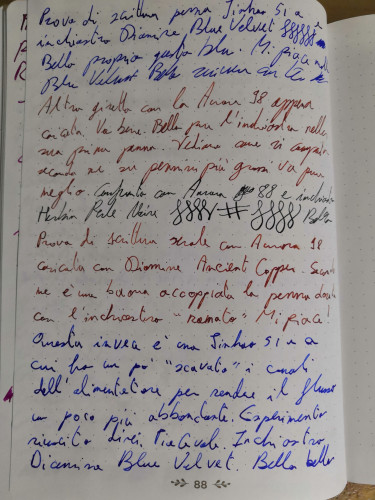 Prova di scrittura penna Jinhao 51 a e
inchiostro Diamine Blue Velvet
Bello proprio questo blu. Mi piace
Blue Velvet Bello scrivere con la
Altro giretto con la Aurora 98 appena
caricata. Va bene. Bello pure l'inchiostro nella
sua prima penna. Vediamo come si comporta
secondo me su pennini più grossi va pure
meglio. Confronto con Aurora 88 e inchiostro
Herbin Perle Noire # Bello
Prova di scrittura serale con Aurora 98
caricata con Diamine Ancient Copper. Secondo
me è una buona accoppiata la penna dorata
con l'inchiostro "ramato" Mi piace!
Questa invece è una Jinhao 51 a a
cui ho un po' "scavato" i canali
dell'alimentatore per rendere il flusso
un poco più abbondante. Esperimento
riuscito direi. Piacevole. Inchiostro
Diamine Blue Velvet. Bello bello
88